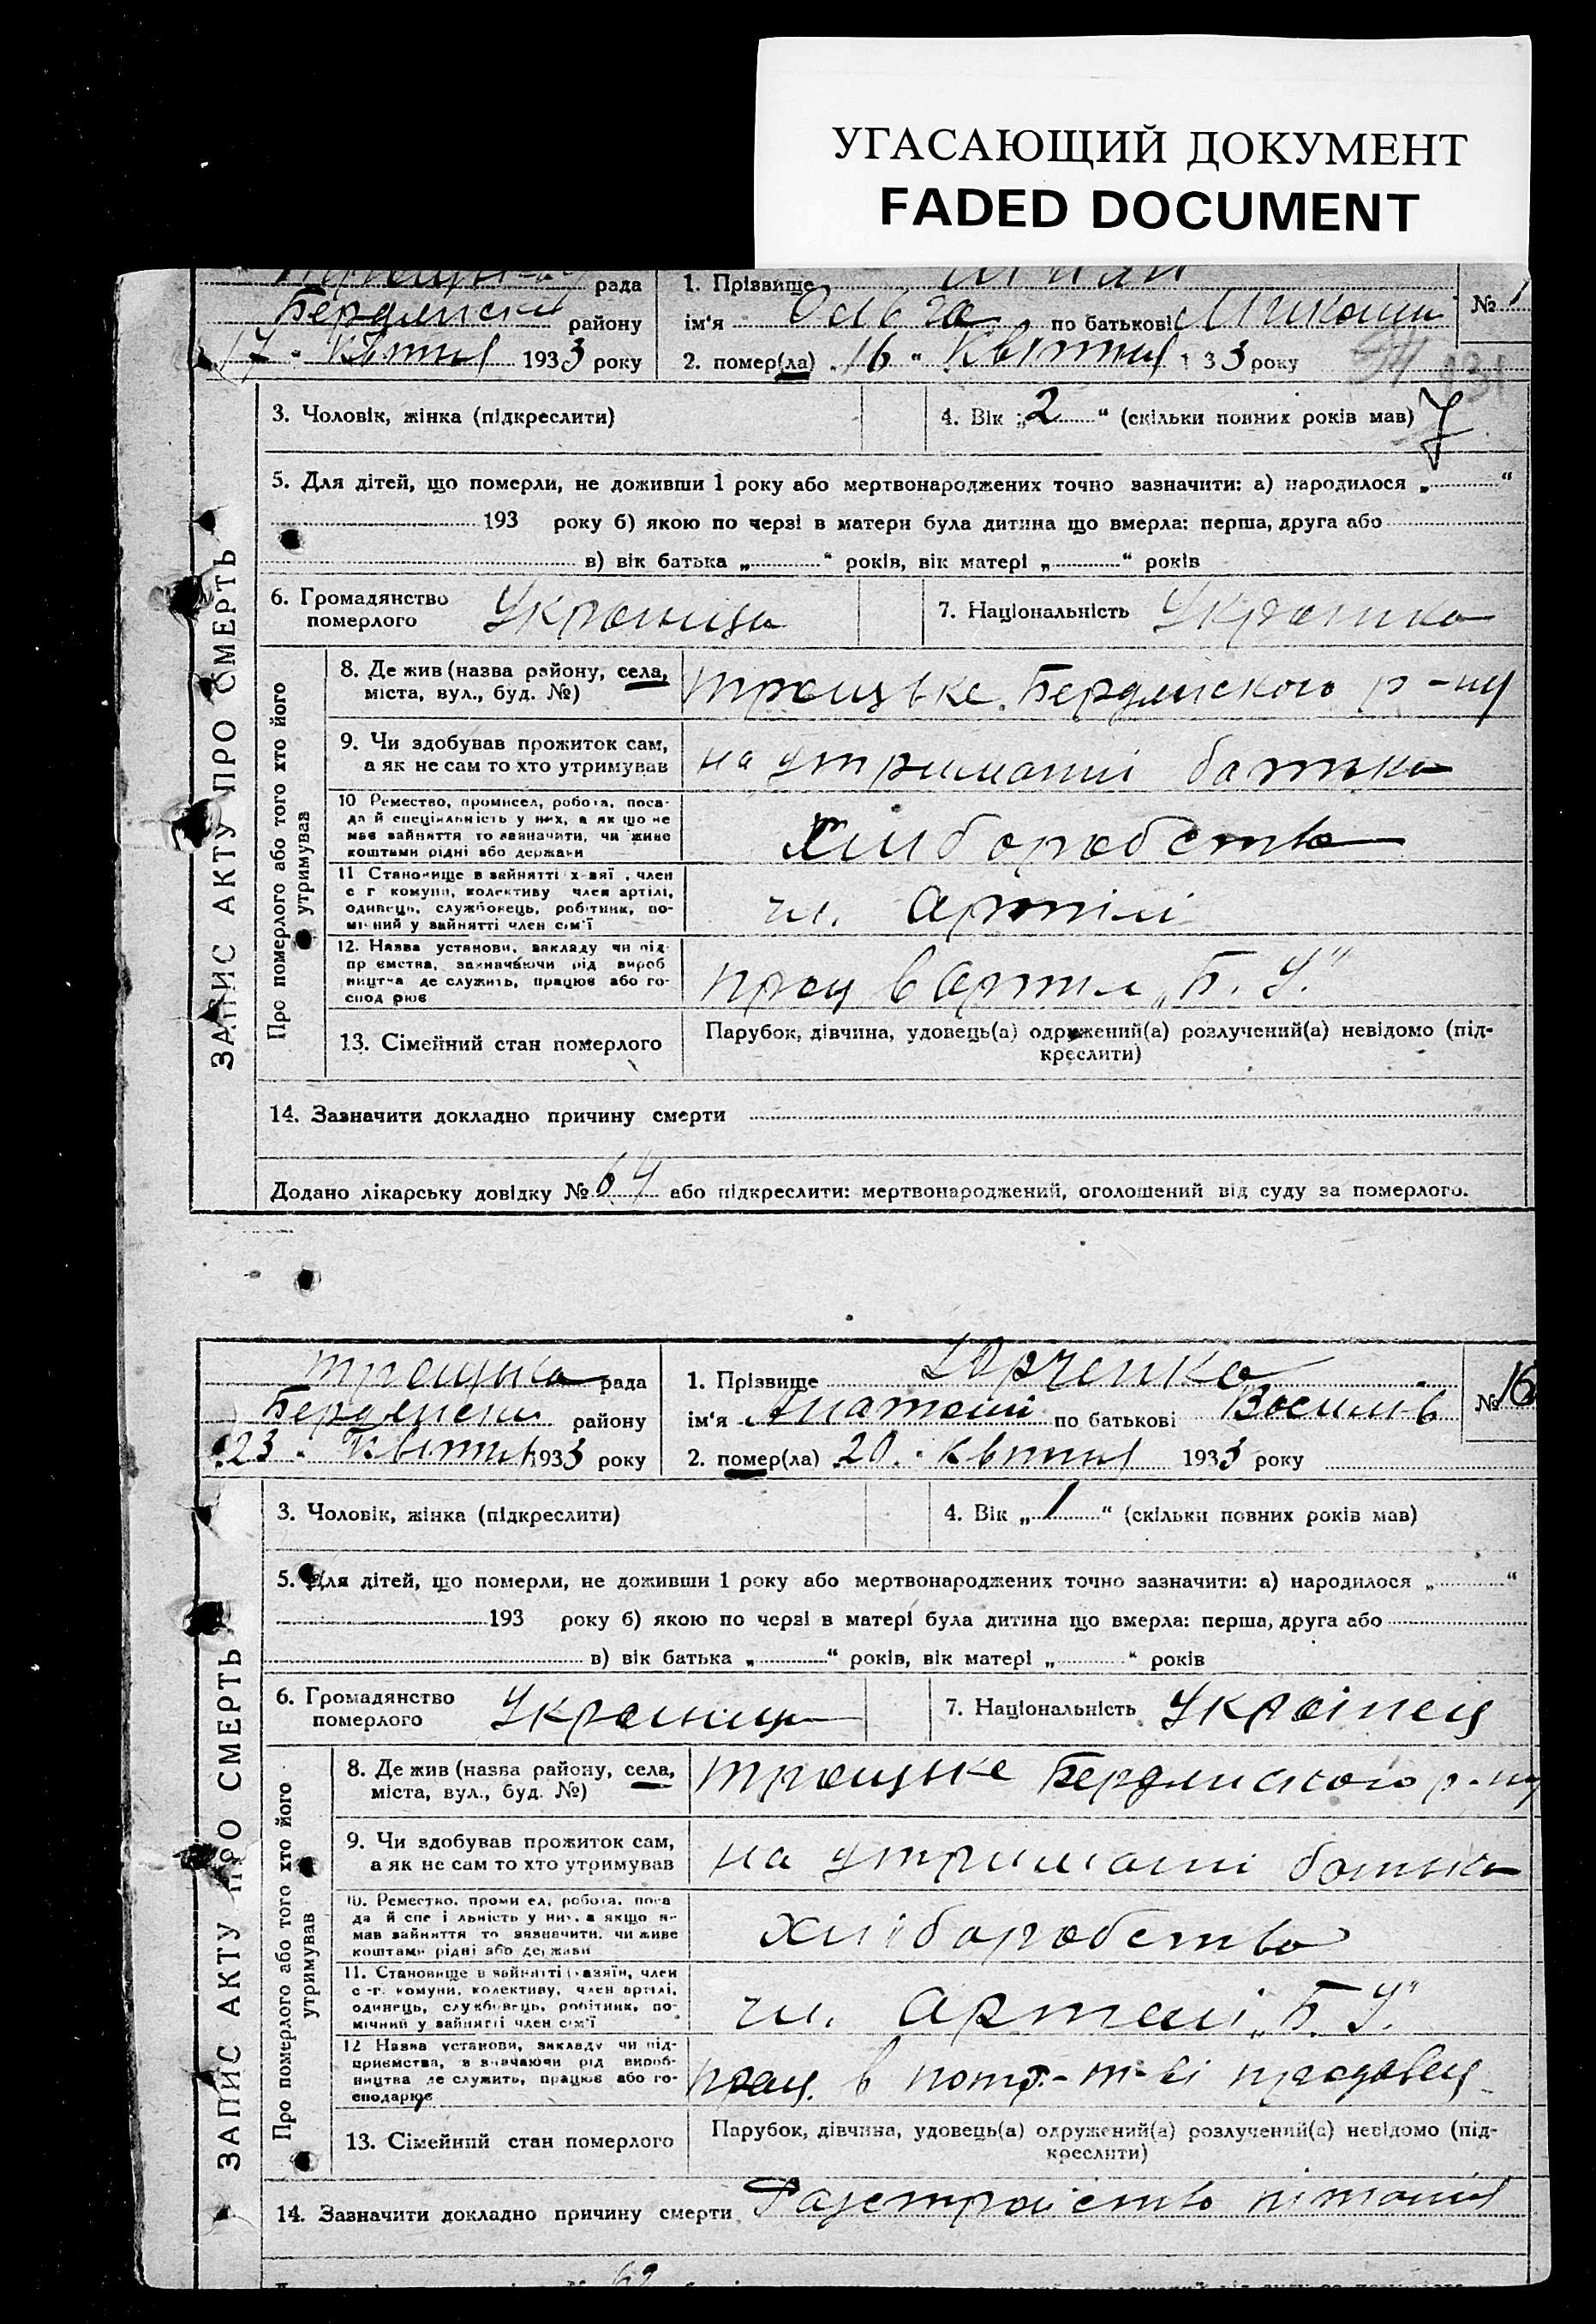 УГАСАЮЩИЙ ДОКУМЕНТ
FADED DOCUMENT
рада
Бердянськ району
17 " квітня 1933 року
1. Прізвище
ім'я Ольга по батькові Микол
2. помер(ла) " 16 " Квітня 1 33 року
№ 1
131
3. Чоловік, жінка (підкреслити)
4. Вік „ 2 “ (скільки повних років мав) 7
5. Для дітей, що померли, не доживши 1 року або мертвонароджених точно зазначити: а) народилося „ “
193 року б) якою по черзі в матери була дитина що вмерла: перша, друга або
в) вік батька „ “ років, вік матері „ “ років
6. Громадянство
померлого
7. Національність Українка
ЗАПИС АКТУ ПРО СМЕРТЬ
Про померлого або того хто його
утримував
8. Де жив (назва району, села,
міста, вул., буд. №)
Троицьке Бердянского р-ну
9. Чи здобував прожиток сам,
а як не сам то хто утримував
на утриманні батька
10 Ремество, промисел, робота, поса-
да й спеціяльність у них, а як що не
має зайняття то зазначити, чи живе
коштами рідні або держави
Хліборобство
11 Становище в зайнятті х-зяї , член
с г комуни, колективу член артілі,
одинець, службовець, робітник, по-
мічний у зайнятті член сім'ї
чл. Артілі
12. Назва установи, закладу чи під-
пр ємства, зазначаючи рід вироб
ництва де служить, працює або го-
спод рює
прац в Артіл „Б. У.“
13. Сімейний стан померлого
Парубок, дівчина, удовець(а) одружений(а) розлучений(а) невідомо (під-
креслити)
14. Зазначити докладно причину смерти
Додано лікарську довідку № 64 або підкреслити: мертвонароджений, оголошений від суду за померлого.
Троицька рада
Бердянськ району
23 " Квітня 1933 року
1. Прізвище Юрченко
ім'я Анатолій по батькові Василів
2. помер(ла) 20 " квітня 1933 року
№ 16
3. Чоловік, жінка (підкреслити)
4. Вік „ 1 “ (скільки повних років мав)
5. Для дітей, що померли, не доживши 1 року або мертвонароджених точно зазначити: а) народилося „ “
193 року б) якою по черзі в матері була дитина що вмерла: перша, друга або
в) вік батька „ “ років, вік матері „ “ років
6. Громадянство
померлого
7. Національність Українець
ЗАПИС АКТУ ПРО СМЕРТЬ
Про померлого або того хто його
утримував
8. Де жив (назва району, села,
міста, вул., буд. №)
Троицьке Бердянского р-ну
9. Чи здобував прожиток сам,
а як не сам то хто утримував
на утриманні батька
10. Ремество, проми ел, робота, поса
да й спе і льність у них, а якщо н-
мав зайняття то зазначити, чи живе
коштами рідні або держави
хліборобство
11. Становище в зайнятті (хазяїн, член
с -г. комуни, колективу, член артілі,
одинець, службовець, робітник, по-
мічний у зайнятті член сім'ї
чл. Артелі „Б. У.“
12 Назва установи, закладу чи під-
приємства, з значаючи рід вироб-
ництва де служить, працює або го-
сподарює
прац. в потр.-т-ві продавец
13. Сімейний стан померлого
Парубок, дівчина, удовець(а) одружений(а) розлучений(а) невідомо (під-
креслити)
14. Зазначити докладно причину смерти Разстройство пітания
62